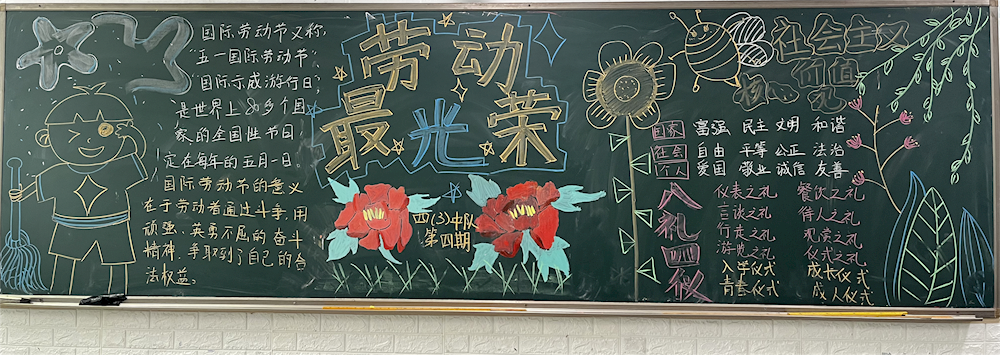 国际劳动节又称,
“五一国际劳动节”
“国际示威游行日”
是世界上80多个国
家的全国性节日
定在每年的五月一日。
国际劳动节的意义
在于劳动者通过斗争,用
顽强、英勇不屈的奋斗
精神,争取到了自己的合
法权益。
劳动
最光荣
四(3)中队
第四期
社会主义
价值
国家 富强 民主 文明 和谐
社会 自由 平等 公正 法治
个人 爱国 敬业 诚信 友善
八礼四仪
仪表之礼 餐饮之礼
言谈之礼 待人之礼
行走之礼 观赏之礼
游览之礼 仪式之礼
入学仪式 成长仪式
青春仪式 成人仪式